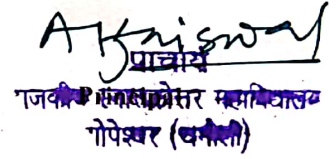 AKJaiswal
प्राचार्य
राजकीय स्नातकोत्तर महाविद्यालय
गोपेश्वर (चमोली)